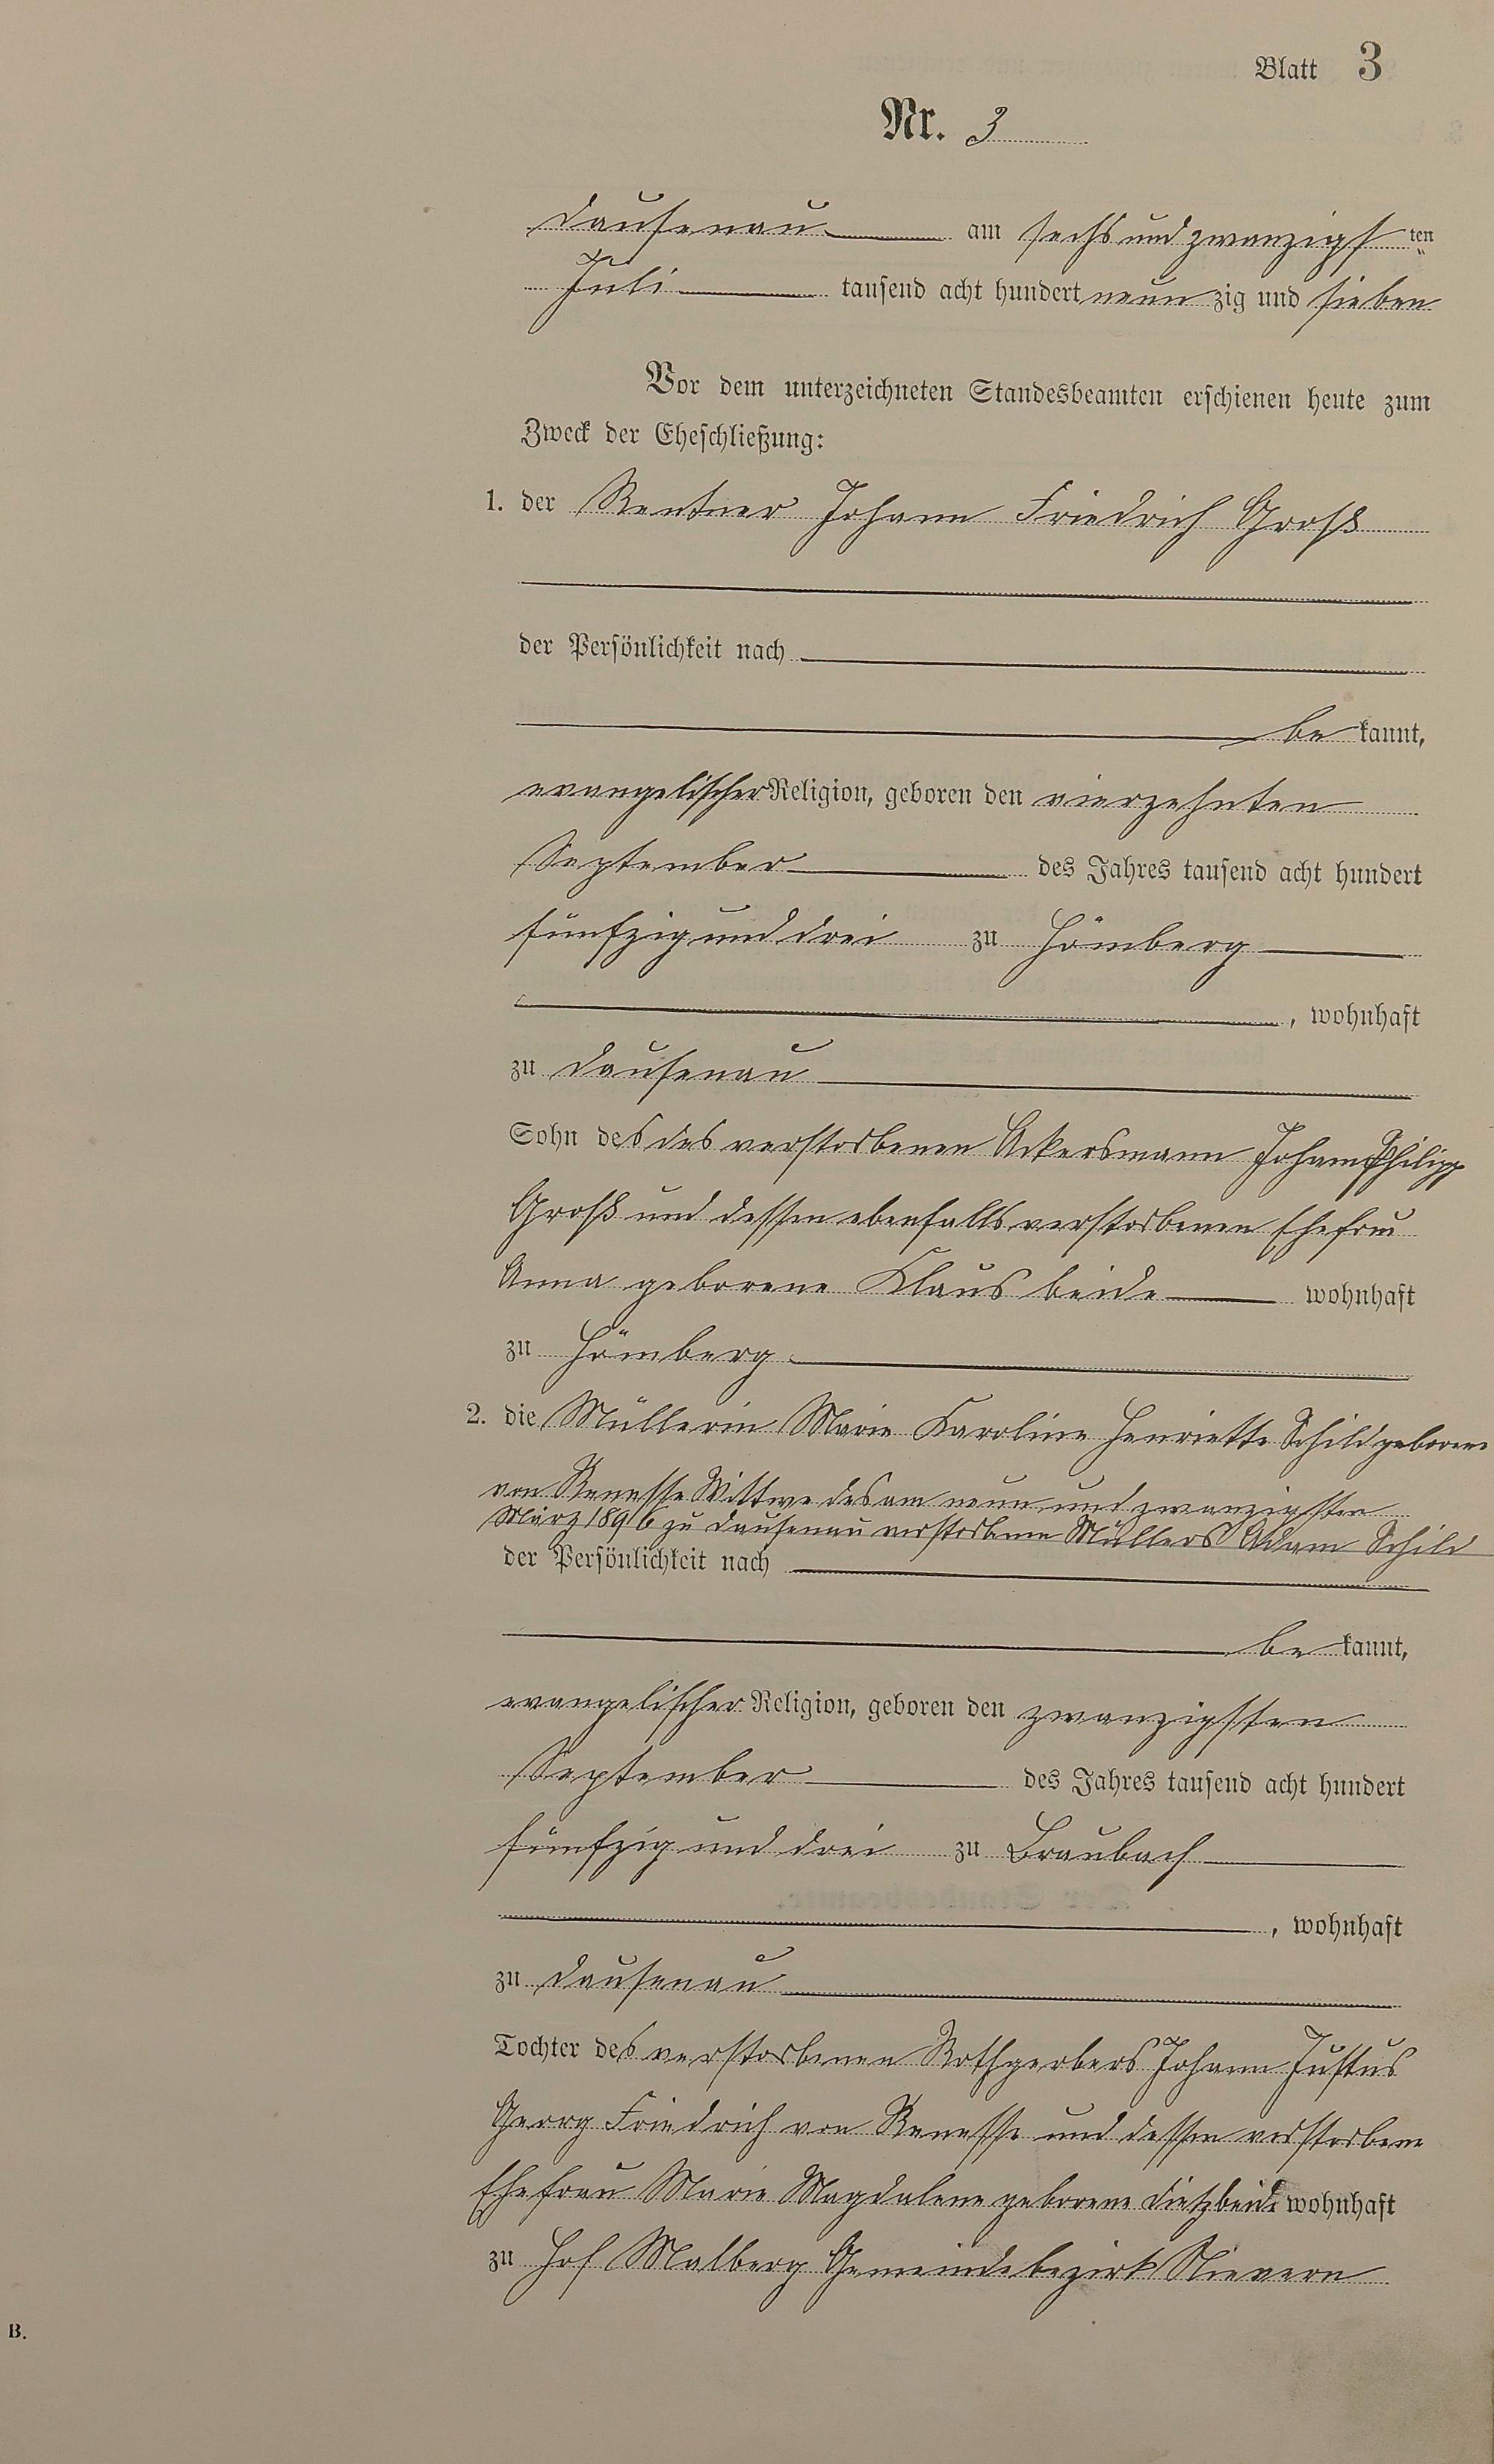 Blatt 3
Nr. 3
Dausenau am sechs und zwanzigsten
Juli tausend acht hundert neunzig und sieben
Vor dem unterzeichneten Standesbeamten erschienen heute zum
Zweck der Eheschließung:
1. der Rentner Johann Friedrich Groß
der Persönlichkeit nach
bekannt,
evangelischer Religion, geboren den vierzehnten
September des Jahres tausend acht hundert
fünfzig und drei zu Hömberg
, wohnhaft
zu Dausenau
Sohn des des verstorbenen Ackersmann Johann Philipp
Groß und dessen ebenfalls verstorbenen Ehefrau
Anna geborene Klaus beide wohnhaft
zu Hömberg
2. die Müllerin Marie Karoline Henriette Schild geborene
von Renesse Wittwe des am neun und zwanzigsten
März 1896 zu Dausenau verstorbenen Müllers Adam Schild
der Persönlichkeit nach
bekannt,
evangelischer Religion, geboren den zwanzigsten
September des Jahres tausend acht hundert
fünfzig und drei zu Braubach
, wohnhaft
zu Dausenau
Tochter des verstorbenen Rothgerbers Johann Justus
Georg Friedrich von Renesse und dessen verstorbene
Ehefrau Marie Magdalene geborene Dietz beide wohnhaft
zu Hof Malberg Gemeindebezirk Nievern
B.